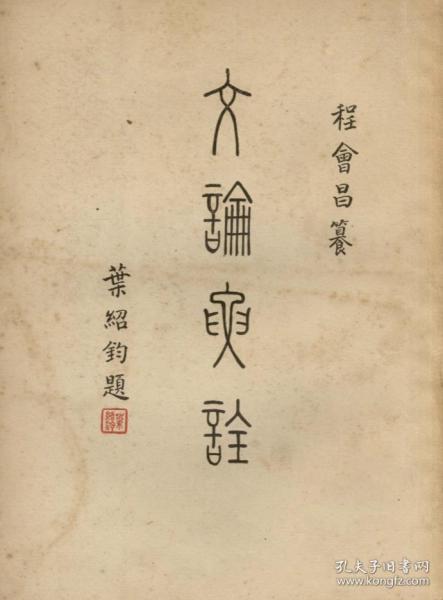 程會昌籑
文論要詮
葉紹鈞題
孔夫子旧书网
www.kongfz.com